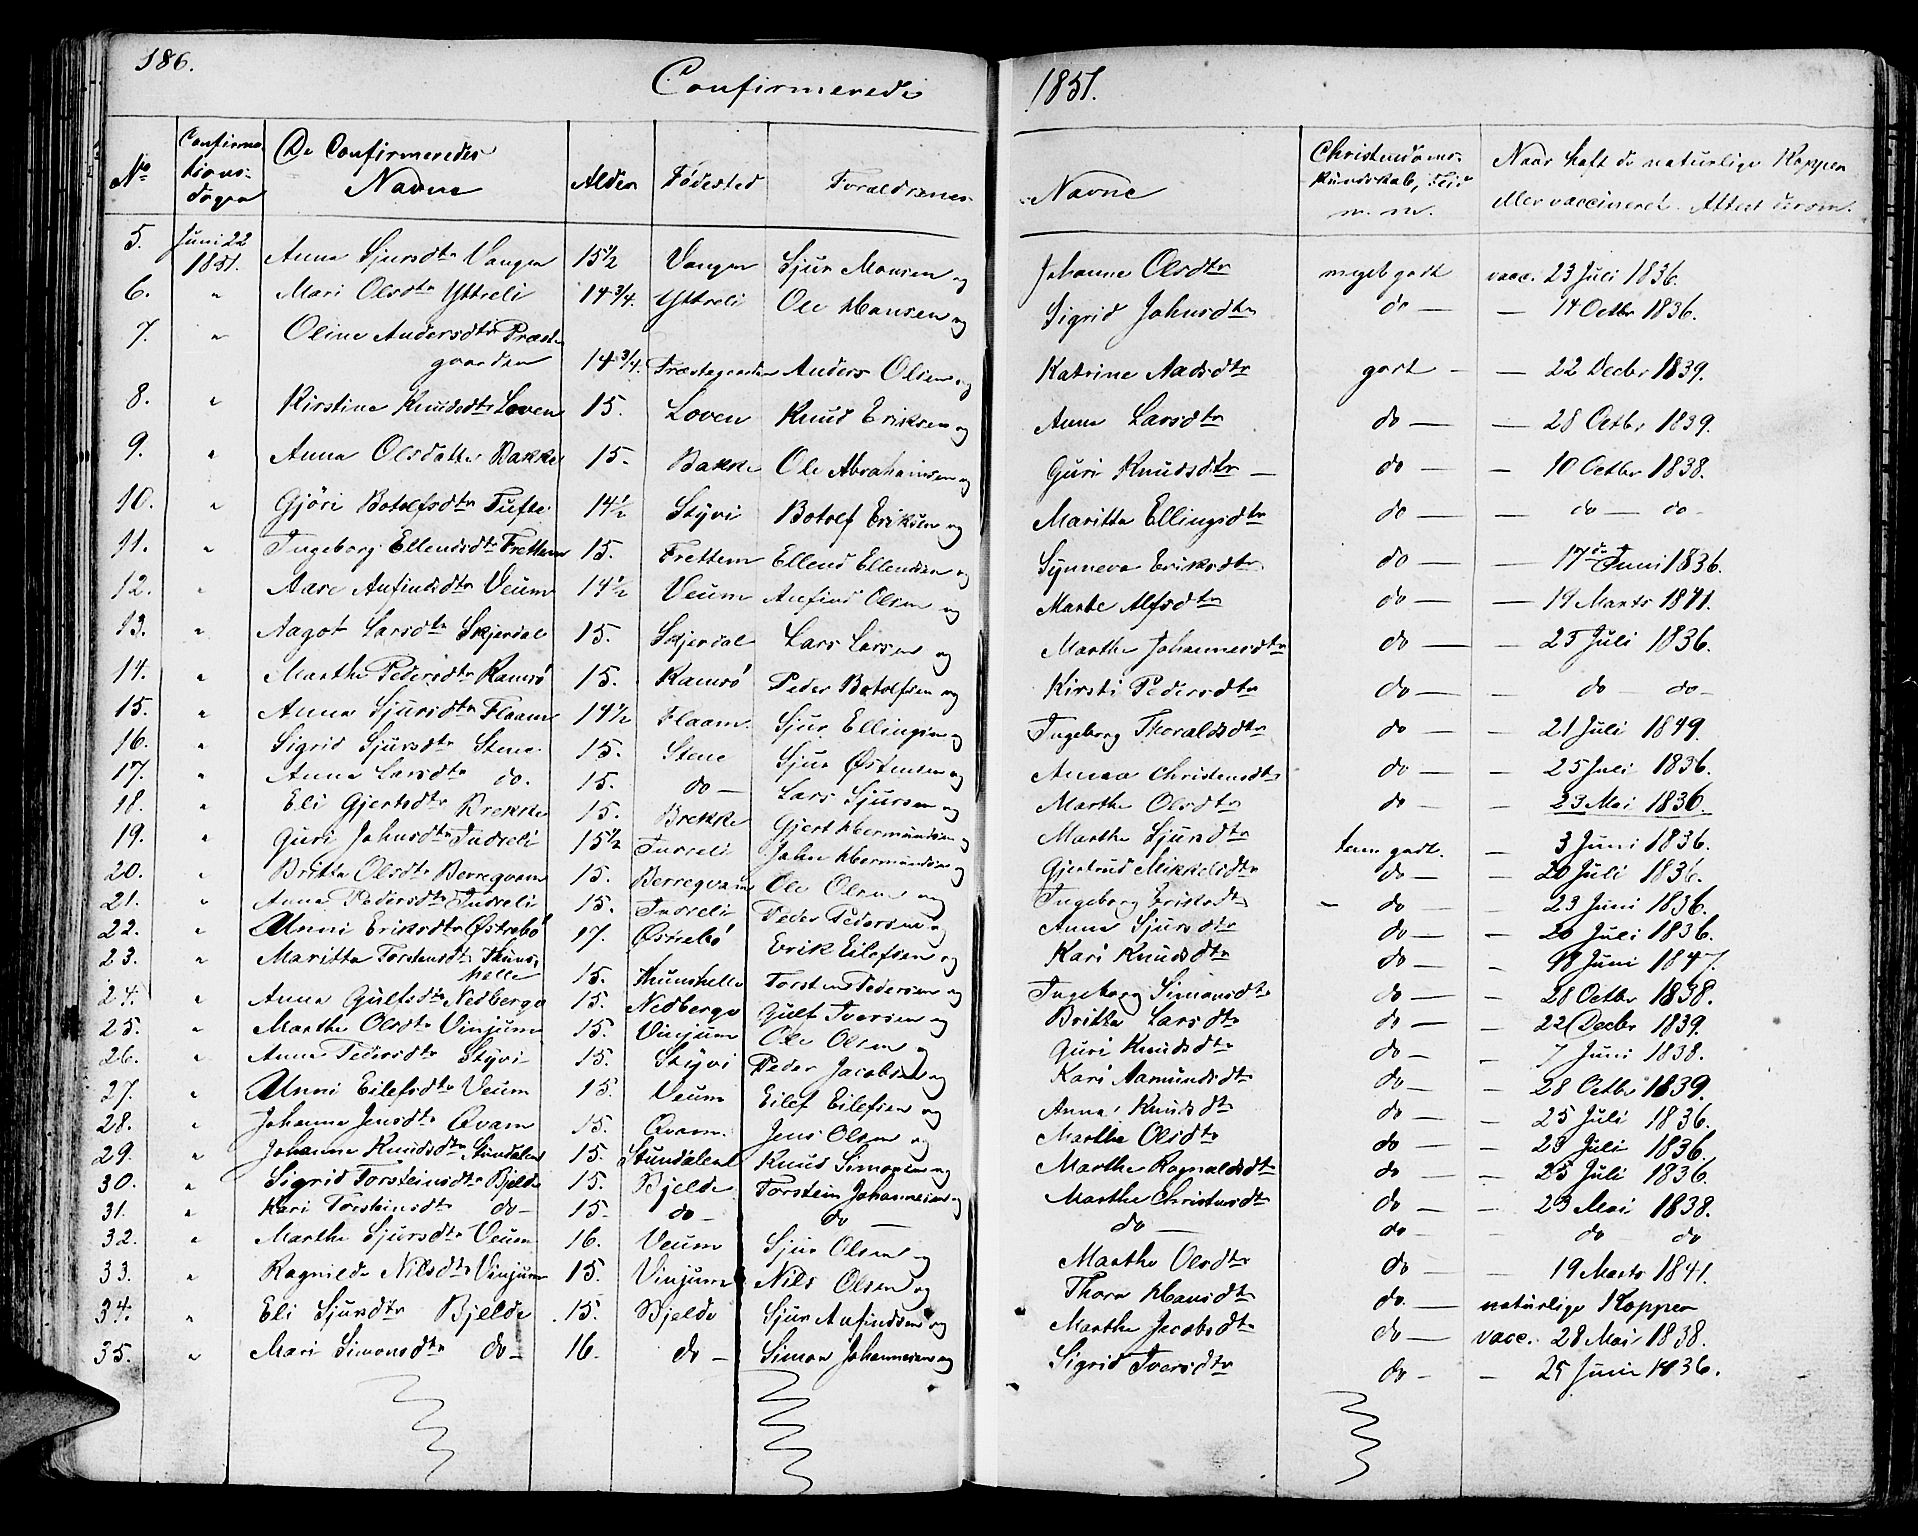 186.
Confirmerede 1851.
No Confirmations-dagen De Confirmeredes Navne Alder Fødested Forældrenes Navne Christendoms-kundskab, Flid m. m. Naar haft de naturlige Kopper eller vaccineret. Attest derom.
5. Juni 22 1851. Anna Sjursdtr Vangen 15 1/2 Vangen Sjur Monsen og Johanne Olsdtr meget godt vacc. 23 Juli 1836.
6. " Mari Olsdtr Yttreli 14 3/4. Yttreli Ole Hansen og Sigrid Johnsdtr do — — 14 Octbr 1836.
7. " Oline Andersdtr Præste-gaarden 14 3/4. Præstegaarden Anders Olsen og Katrine Aadsdtr godt - — 22 Decbr 1839.
8. " Kirstine Knudsdtr Loven 15. Loven Knud Eriksen og Anna Larsdtr do — — 28 Octbr 1839.
9. " Anna Olsdatter Bakke 15. Bakke Ole Abrahamsen og Guri Knudsdtr — do — — 10 Octbr 1838.
10. " Gjöri Botolfsdtr Tufte 14 1/2 Styvi Botolf Eriksen og Maritta Ellingsdtr do — — do — do -
11. " Ingeborg Ellendsdtr Frettem 15. Frettem Ellend Ellendsen og Synneva Eriksdtr do — — 17de Juni 1836.
12. " Aase Anfindsdtr Veum 14 1/2 Veum Anfind Olsen og Marte Alfsdtr do — — 19 Marts 1841.
13. " Aagot Larsdtr Skjerdal 15. Skjerdal Lars Larsen og Marthe Johannesdtr do — — 25 Juli 1836.
14. " Marthe Pedersdtr Ramsö 15. Ramsö Peder Botolfsen og Kirsti Pedersdtr do — — do — do -
15. " Anna Sjursdtr Flaam 14 1/2 Flaam. Sjur Ellingsen og Ingeborg Thoraldsdtr do — — 21 Juli 1849.
16. " Sigrid Sjursdtr Stene 15. Stene Sjur Østensen og Anna Christensdtr do — — 25 Juli 1836.
17. " Anna Larsdtr do. 15. do — Lars Sjursen og Marthe Olsdtr do — — 23 Mai 1836.
18. " Eli Gjertsdtr Brekke 15. Brekke Gjert Hermundsen og Marthe Sjursdtr tem. godt. — 3 Juni 1836.
19. " Guri Johnsdtr Indreli 15 1/2 Indreli John Hermundsen og Gjertrud Mikkelsdtr do — — 20 Juli 1836.
20. " Britta Olsdtr Berregvam 15. Berregvam Ole Olsen og Ingeborg do — — 23 Juni 1836.
21. " Anna Pedersdtr Indreli 15. Indreli Peder Pedersen og Anna Sjursdtr do — — 20 Juli 1836.
22. " Unni Eriksdtr Østrebö 17. Østrebö Erik Eilefsen og Kari Knudsdtr do — — 18 Juni 1847.
23. " Maritta Torstensdtr Thuns-helle 15. Thunshelle Torsten Pedersen og Ingeborg Simonsdtr do — — 28 Octbr 1838.
24. " Anna Gultsdtr Nedberge 15. Nedberge Gult Iversen og Britta Larsdtr do — — 22 Decbr 1839.
25. " Marthe Olsdtr Vinjum 15. Vinjum Ole Olsen og Guri Knudsdtr do — — 7 Juni 1838.
26. " Anna Pedersdtr Styvi 15. Styvi Peder Jacobsen og Kari Aamundsdtr do — — 28 Octbr 1839.
27. " Unni Eilefsdtr Veum 15. Veum Eilef Eilefsen og Anna Knudsdtr do — — 25 Juli 1836.
28. " Johanna Jensdtr Qvam 15. Qvam. Jens Olsen og Marthe Olsdtr do — — 23 Juli 1836.
29. " Johanna Knudsdtr Stundalen 15. Stundalen Knud Simonsen og Marthe Ragnaldsdtr do — — 25 Juli 1836.
30. " Sigrid Torsteinsdtr Bjelde 15. Bjelde Torstein Johannesen og Marthe Christensdtr do — — 23 Mai 1838.
31. " Kari Torsteinsdtr do — 15. do — do — do — do — do do
32. " Marthe Sjursdtr Veum 16. Veum Sjur Olsen og Marthe Olsdtr do — — 19 Marts 1841.
33. " Ragnilde Nilsdtr Vinjum 15. Vinjum Nils Olsen og Thora Hansdtr do. — naturlige Kopper
34. " Eli Sjursdtr Bjelde 15. Bjelde Sjur Anfindsen og Marthe Jacobsdtr do — vacc. 28 Mai 1838.
35. " Mari Simonsdtr do — 16. do — Simon Johannesen og Sigrid Iversdtr do — — 25 Juni 1836.